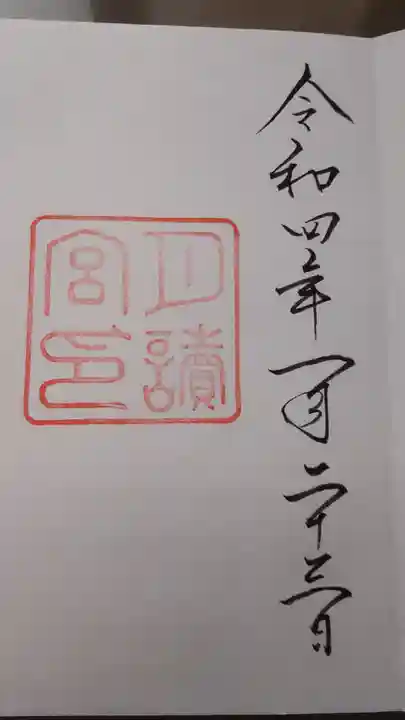 令和四年一月二十三日
月讀
宮印